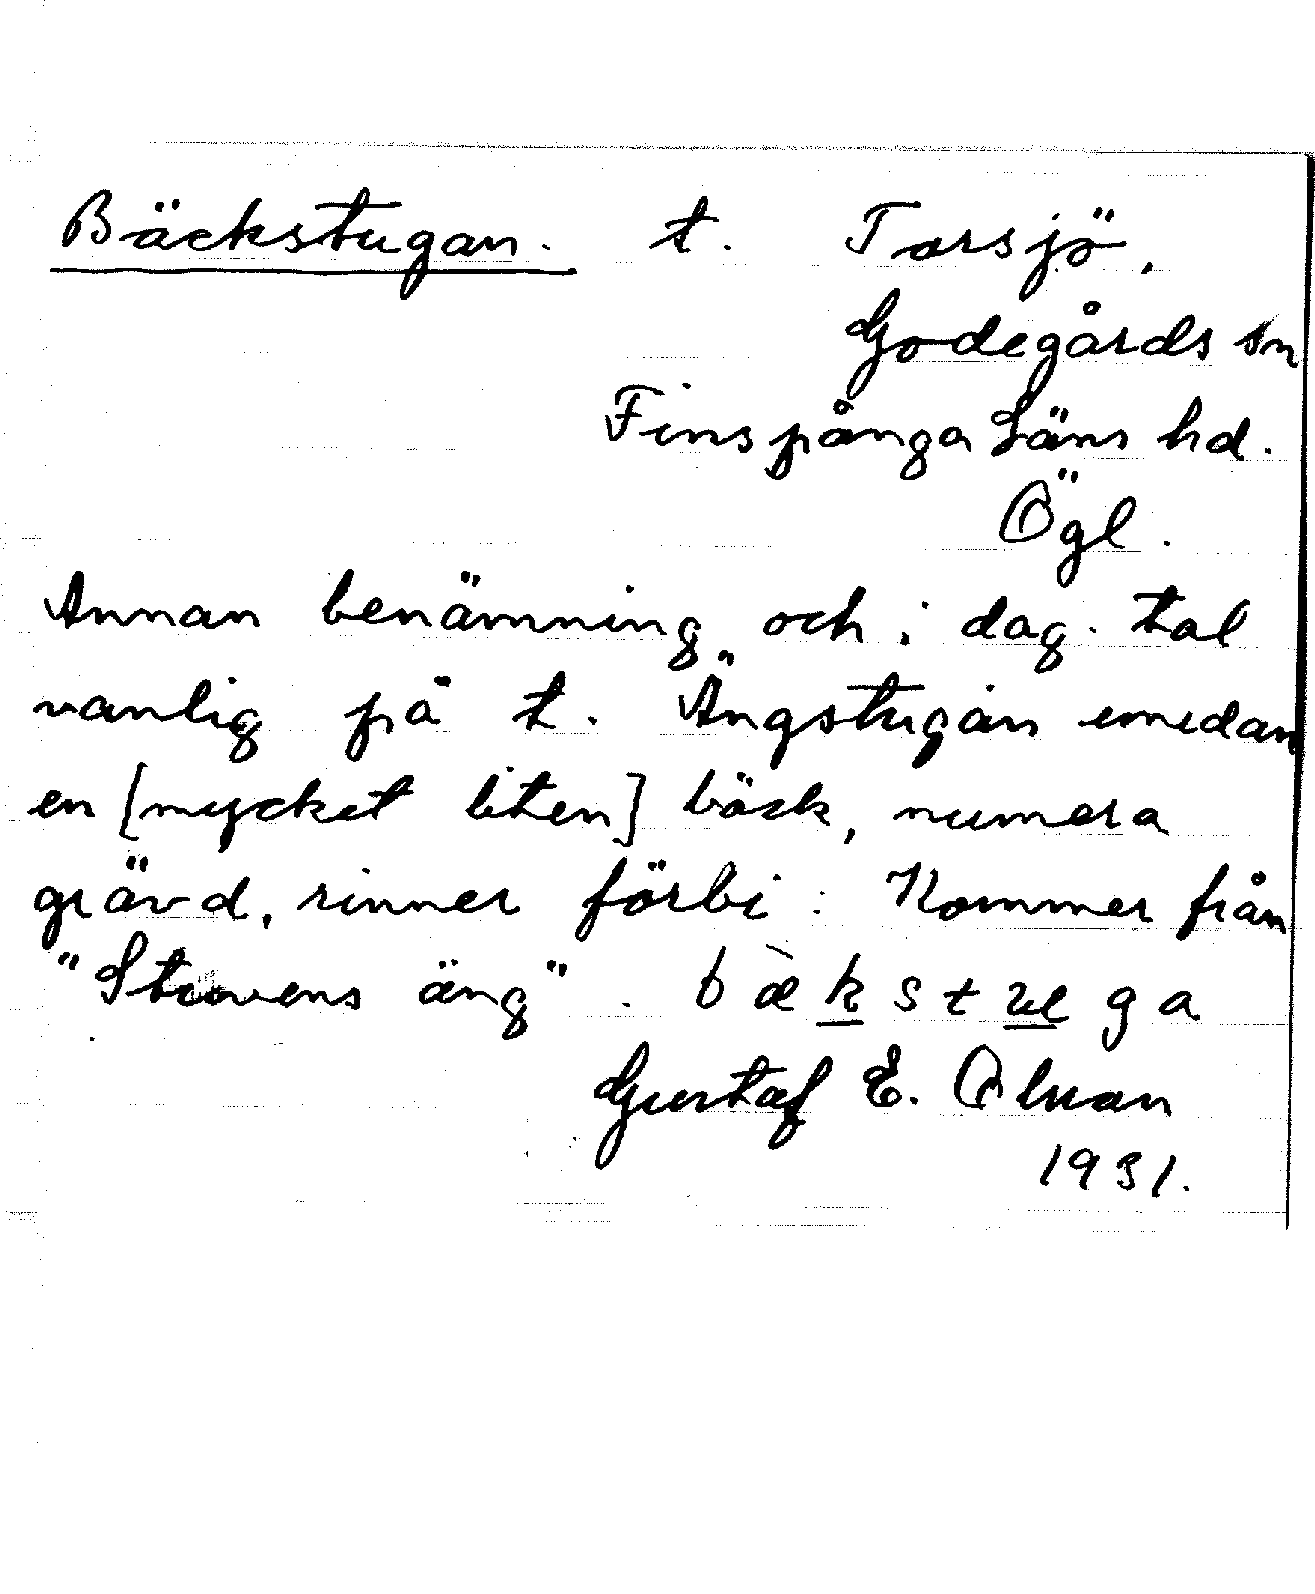 Bäckstugan. t. Torsjö,
Godegårds sn
Finspånga Läns hd.
Ögl.
Annan benämning och i dag. tal
vanlig på t. Ängstugan emedan
en [mycket liten] bäck, numera
grävd, rinner förbi. Kommer från
"Stuvens äng". bækstuga
Gustaf E. Olman
1931.